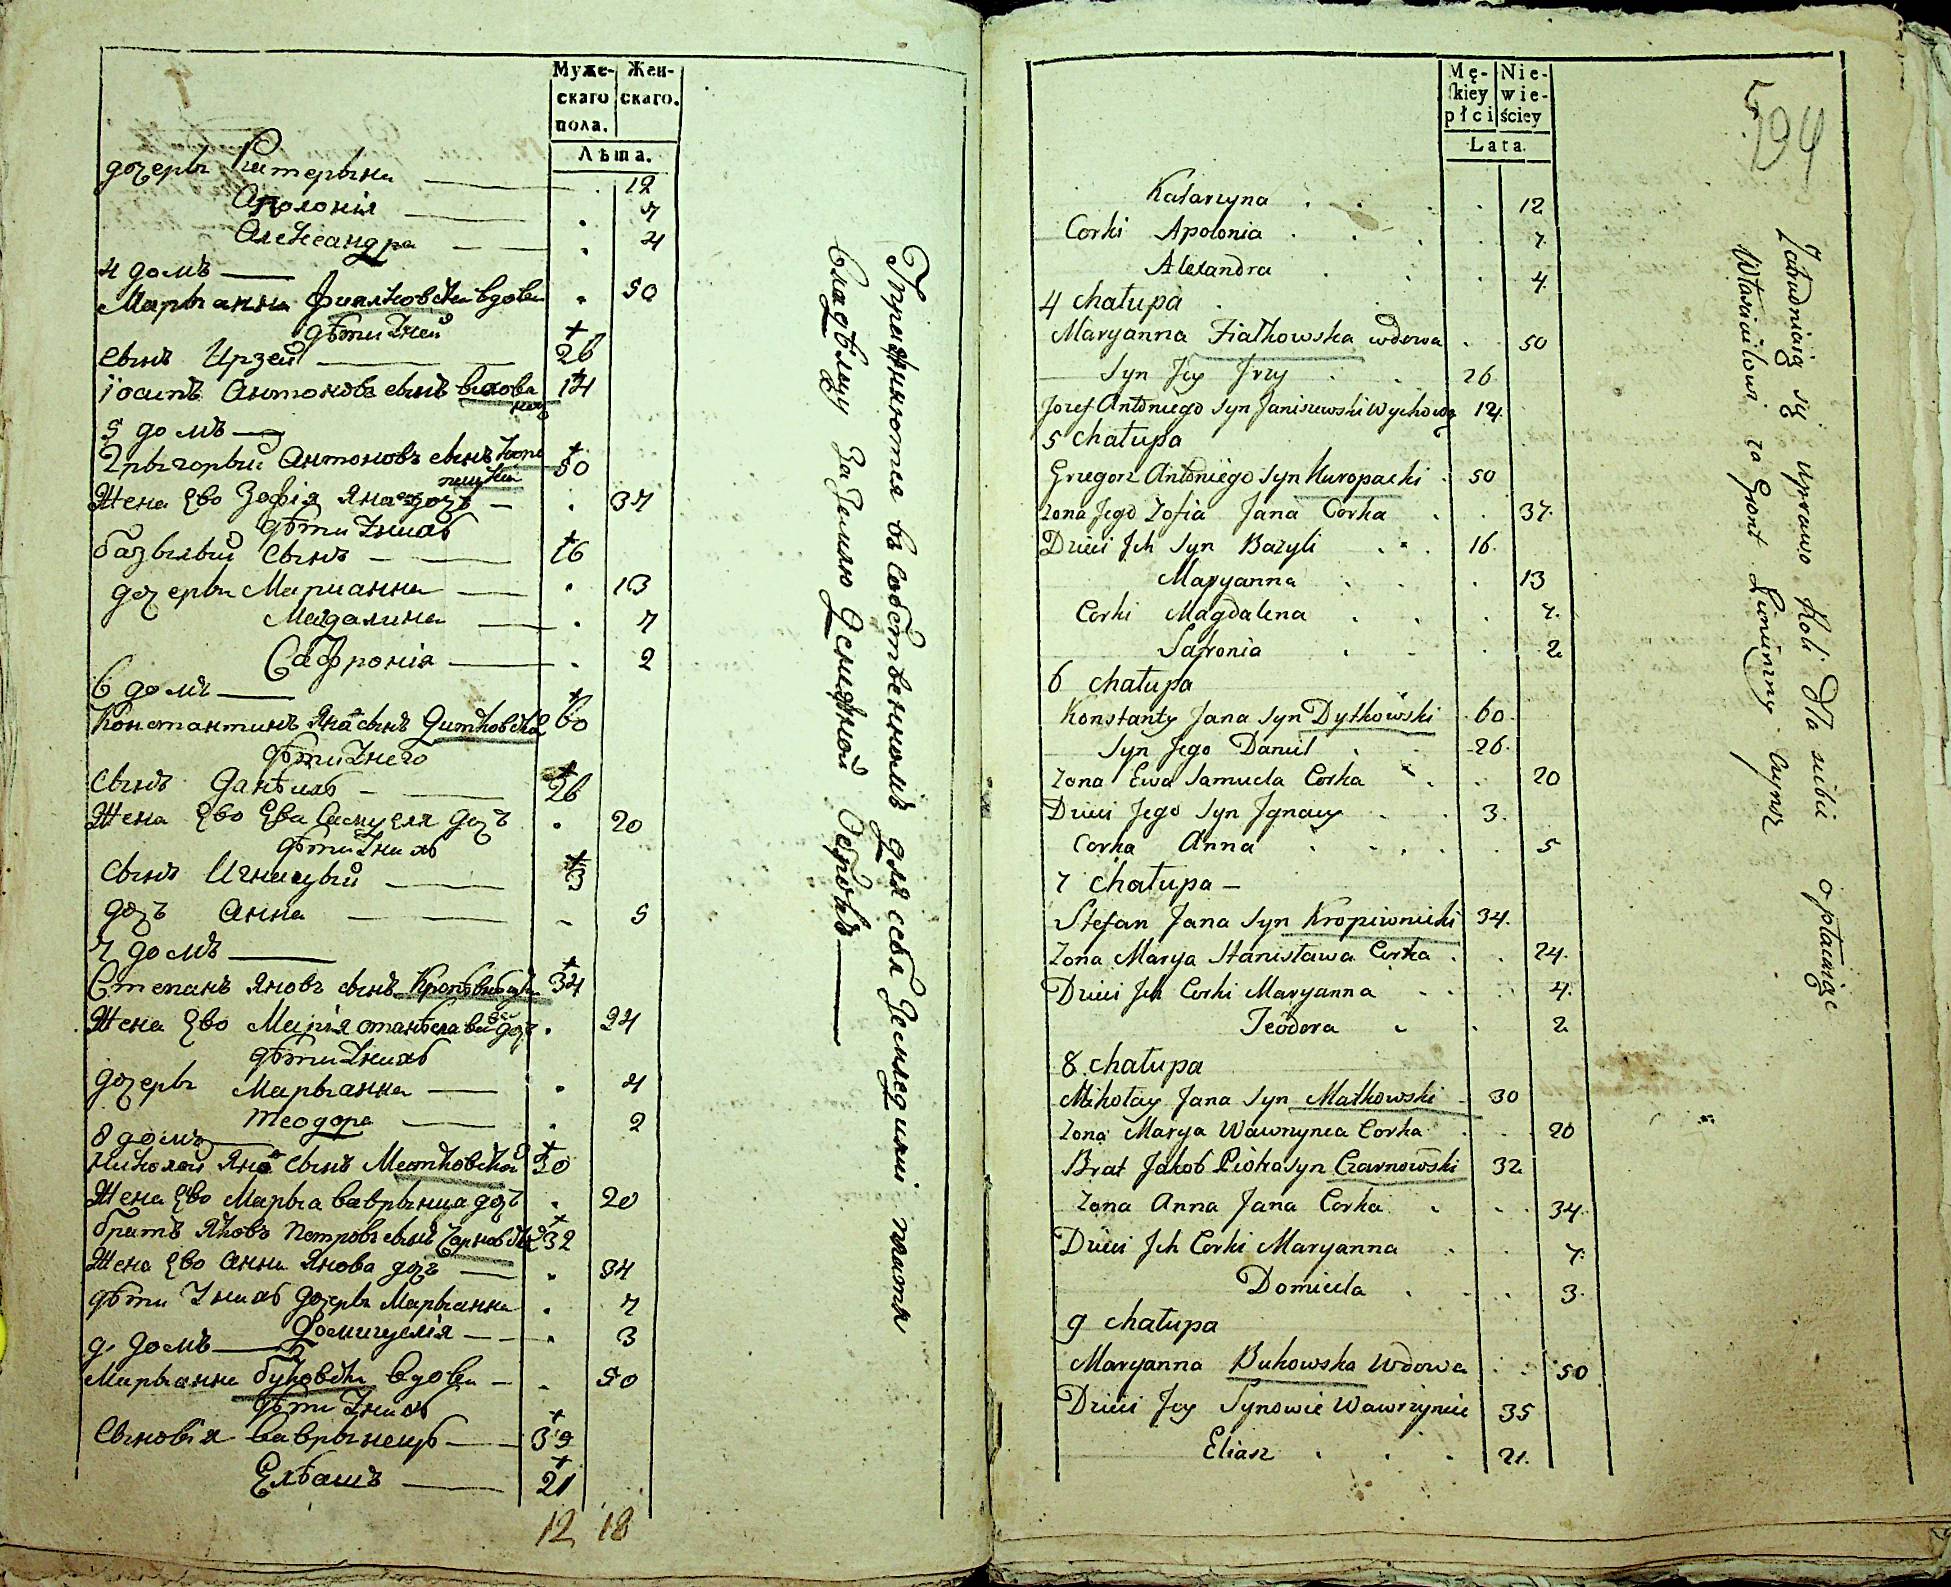 Муже-
скаго
пола.
Жен-
скаго.
Лѣта.
дочеры Катерына 12
Аполонія 7
Александра 4
4 домъ
Марыанна Фиалковска вдова 50
дѣти Унеи
сынъ Ирзеи 26
іосипъ Антоновъ сынъ 14
5 домъ
Грыгорыи Антоновъ сынъ 50
Жена Ево Зофія Яна доч 37
дѣти Уних
базылыи сынъ 16
дочеры Марианна 13
Магдалина 7
Сафронія 2
6 домъ
Константинъ Яна сынъ Дитковски 60
дѣти Унего
сынъ Данѣиль 26
Жена Ево Ева Самуеля доч 20
дѣти Уних
сынъ Игнацыи 3
доч Анна 5
7 домъ
Степанъ Яновъ сынъ 34
Жена Ево Марія доч 24
дѣти Уних
дочеры Марыанна 4
Теодора 2
8 домъ
Николаи Яна сынъ Матковски 30
Жена Ево Марыа Ваврынца доч 20
братъ Яковъ Петровъ сынъ Чарновски 32
Жена Ево Анна Янова доч 34
дѣти Уних дочеры Марыанна 7
Домицелія 3
9 домъ
Марыанна Буковска вдова 50
дѣти Уних
Сыновія Ваврынецъ 35
Еліашъ 21
12 18
Упражняются въ собственномъ для себя Земледиліи платя
Владѣлцу за Землю Оброкъ
Mę-
skiey
płci
Nie-
wie-
ściey
Lata.
594
Katarzyna 12
Corki Apolonia 7
Alexandra 4
4 chałupa
Maryanna Fiałkowska wdowa 50
Syn Jey Jrzy 26
Jozef Antoniego Syn Janiszewski Wychowa 14
5 chałupa
Grzegorz Antoniego Syn Kuropacki 50
Zona Jego Zofia Jana Corka 37
Dzieci Jch Syn Bazyli 16
Maryanna 13
Corki Magdalena 7
Safronia 2
6 chałupa
Konstanty Jana Syn Dytkowski 60
Syn Jego Daniel 26
Zona Ewa Samuela Corka 20
Dzieci Jego Syn Jgnacy 3
Corka Anna 5
7 chałupa
Stefan Jana Syn Kropiwnicki 34
Zona Marya Stanisława Corka 24
Dzieci Jch Corki Maryanna 4
Teodora 2
8 chałupa
Mikołay Jana Syn Matkowski 30
Zona Marya Wawrzynca Corka 20
Brat Jakob Piotra Syn Czarnowski 32
Zona Anna Jana Corka 34
Dzieci Jch Corki Maryanna 7
Domicela 3
9 chałupa
Maryanna Bukowska Wdowa 50
Dzieci Jey Synowie Wawrzyniec 35
Eliasz 21
Zatrudniaią się uprawą Roli dla siebie opłacaiąc
Właścicielowi za Grunt Ziemienny Czynsz